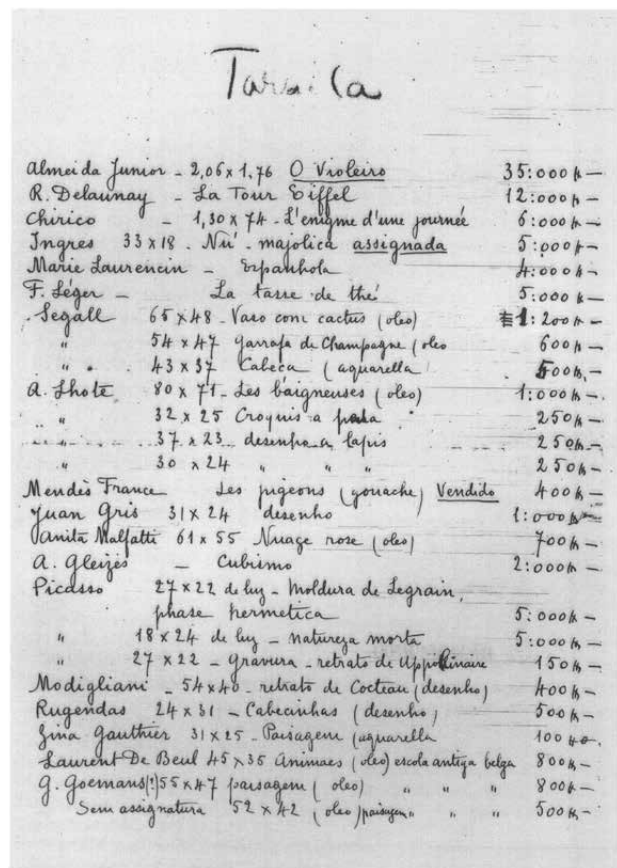 Tarsila
Almeida Junior - 2,06 x 1,76 O Violeiro 35:000$ —
R. Delaunay - La Tour Eiffel 12:000$ —
Chirico - 1,30 x 74 - L'enigme d'une journée 6:000$ —
Ingres 33 x 18 - Nú - majolica assignada 5:000$ —
Marie Laurencin - Espanhola 4:000$ —
F. Léger - La tasse de thé 5:000$ —
Segall 65 x 48 - Vaso com cactus (oleo) 1:200$ —
" 54 x 47 Garrafa de Champagne (oleo 600$ —
" 43 x 37 Cabeca (aquarella 500$ —
A. Lhote 80 x 71 - Les baigneuses (oleo) 1:000$ —
" 32 x 25 Croquis a 250$ —
" 37 x 23 desenho a lapis 250$ —
" 30 x 24 " " " 250$ —
Mendès France Les pigeons (gouache) Vendido 400$ —
Juan Gris 31 x 24 desenho 1:000$ —
Anita Malfatti 61 x 55 Nuage rose (oleo) 700$ —
A. Gleizès - Cubismo 2:000$ —
Picasso 27 x 22 de luz - Moldura de Legrain,
phase hermetica 5:000$ —
" 18 x 24 de luz - natureza morta 5:000$ —
" 27 x 22 - Gravura - retrato de Appollinaire 150$ —
Modigliani - 54 x 40 - retrato de Cocteau (desenho) 400$ —
Rugendas 24 x 31 - Cabecinhas (desenho) 500$ —
Gina Gauthier 31 x 25 - Paisagem (aquarella 100$ —
Laurent De Beul 45 x 35 Animaes (oleo) escola antiga belga 800$ —
G. Goemans(?) 55 x 47 paisagem (oleo) " " " 800$ —
Sem assignatura 52 x 42 (oleo) paisagem " " " 500$ —